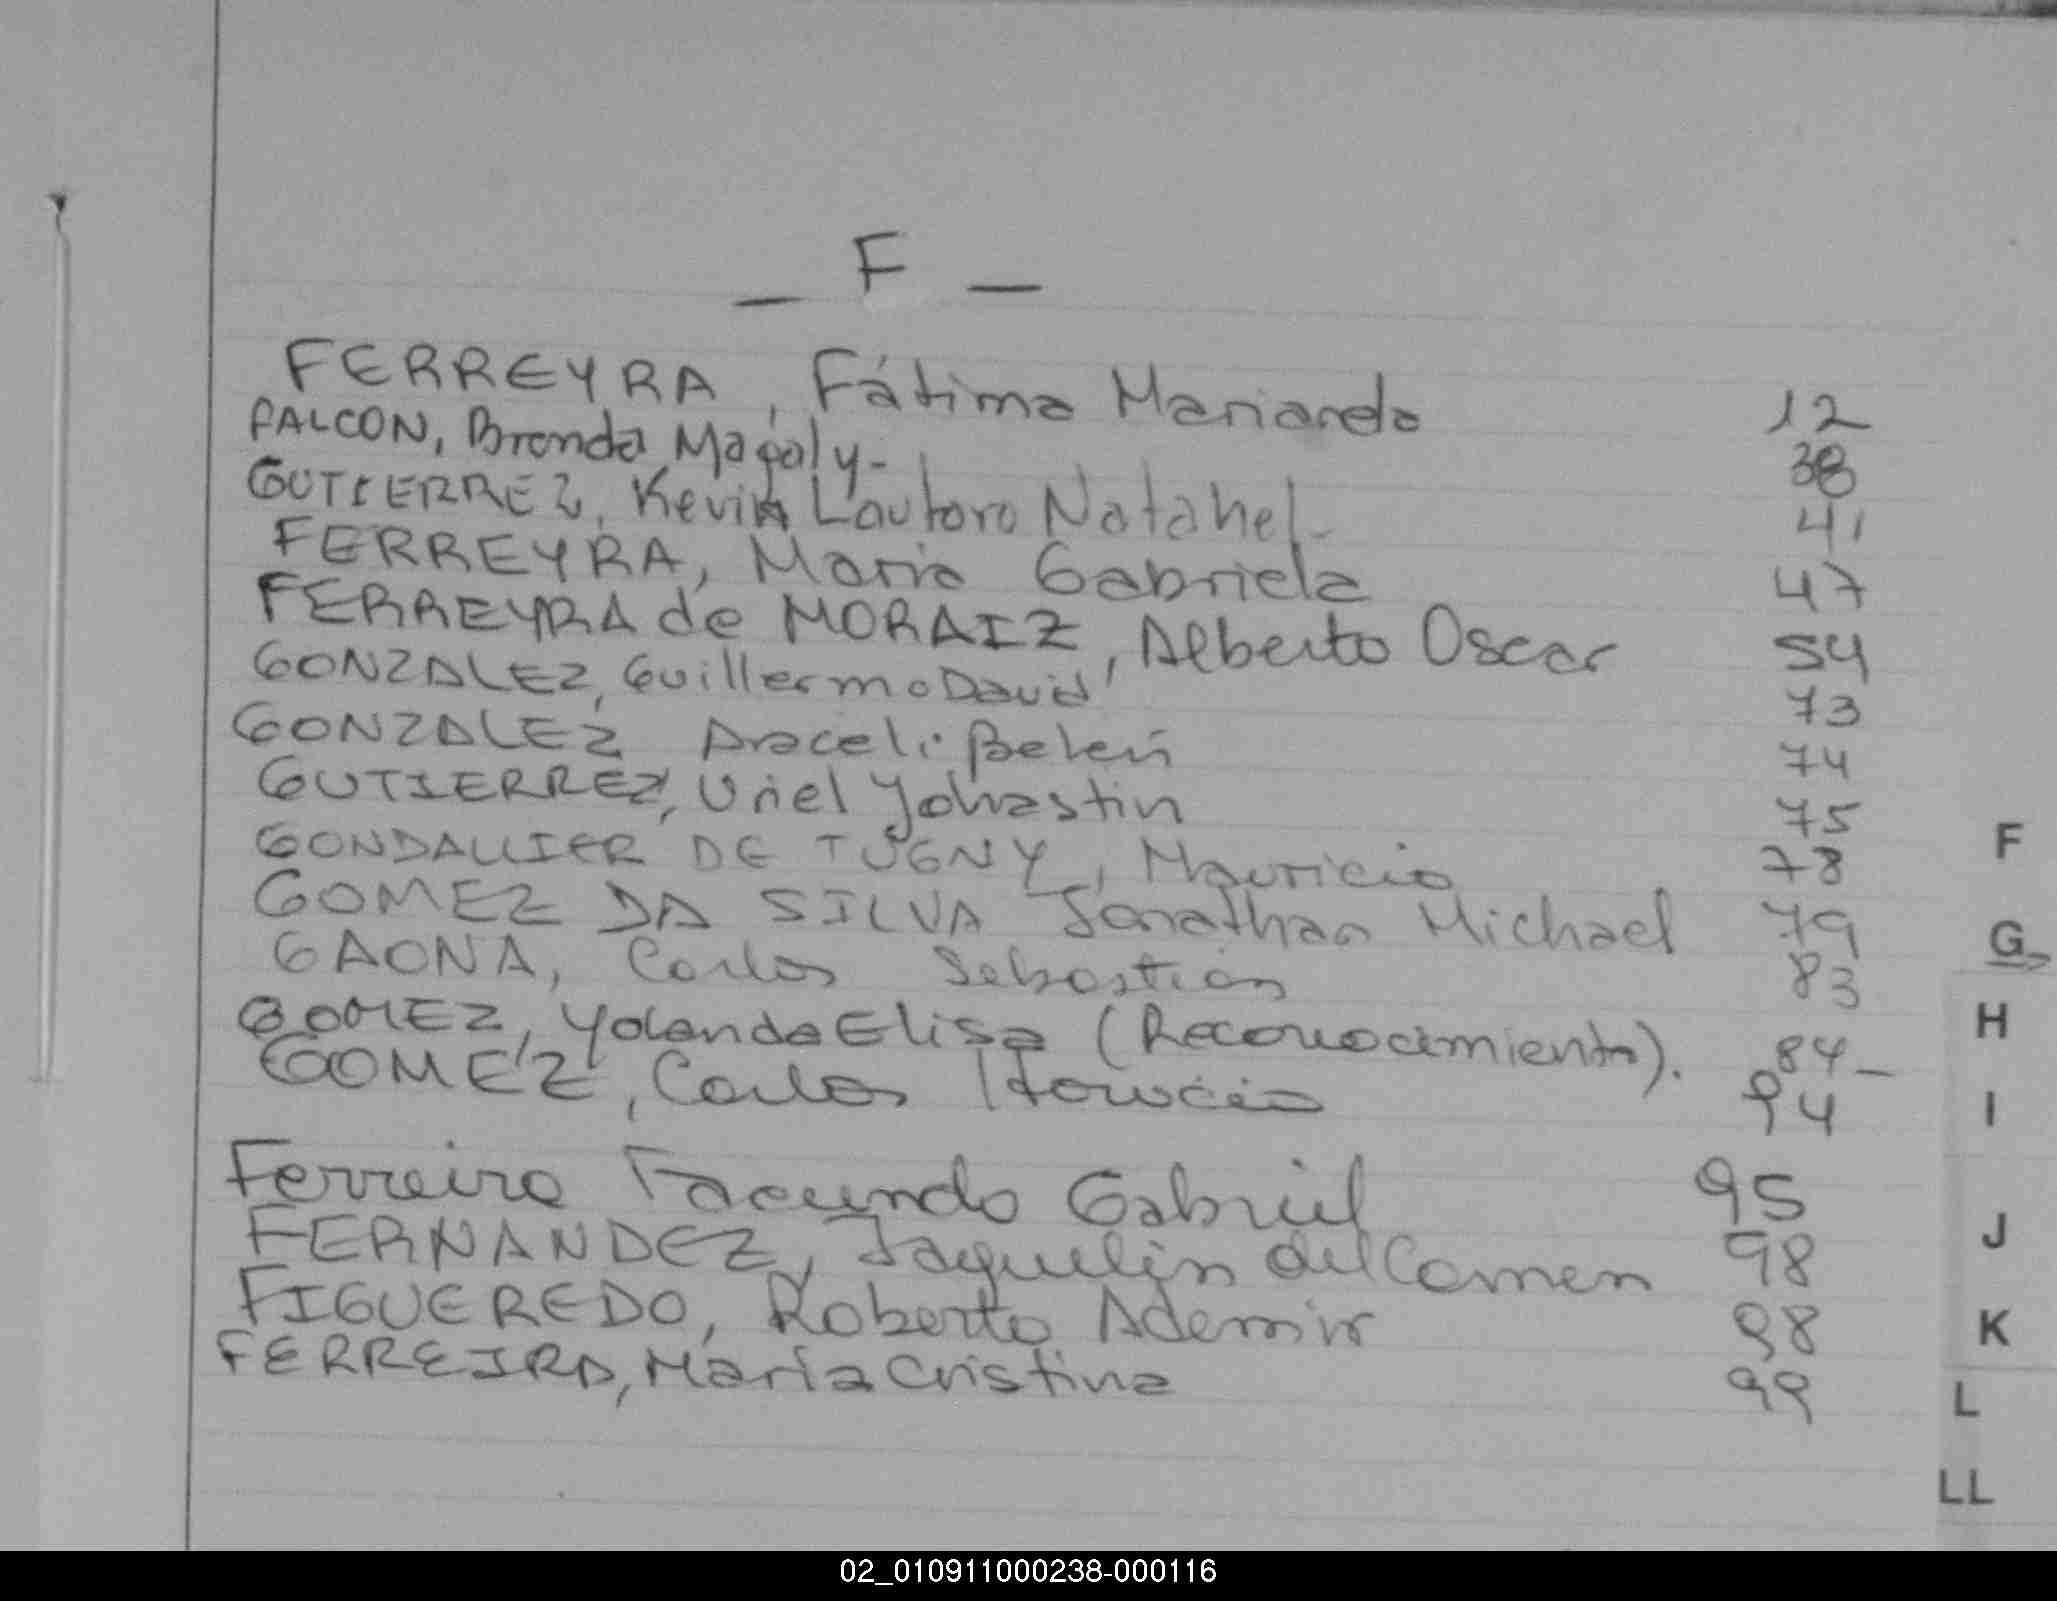 _ F _
FERREYRA, Fátima Marianela 12
FALCON, Brenda Magaly- 38
GUTIERREZ, Kevin Lautaro Natahel- 41
FERREYRA, Maria Gabriela 47
FERREYRA de MORAIZ, Alberto Oscar 54
GONZALEZ, Guillermo David 73
GONZALEZ Araceli Belén 74
GUTIERREZ, Uriel Yohastin 75
GONDALLIER DE TUGNY, Mauricio 78
GOMEZ DA SILVA Jonathan Michael 79
GAONA, Carlos Sebastián 83
GOMEZ, Yolanda Elisa (Reconocimiento). 84-
GOMEZ, Carlos Horacio 94
Ferreira Facundo Gabriel 95
FERNANDEZ, Jaquelin del Carmen 98
FIGUEREDO, Roberto Ademir 98
FERREIRA, María Cristina 99
F
G
H
I
J
K
L
LL
02_010911000238-000116